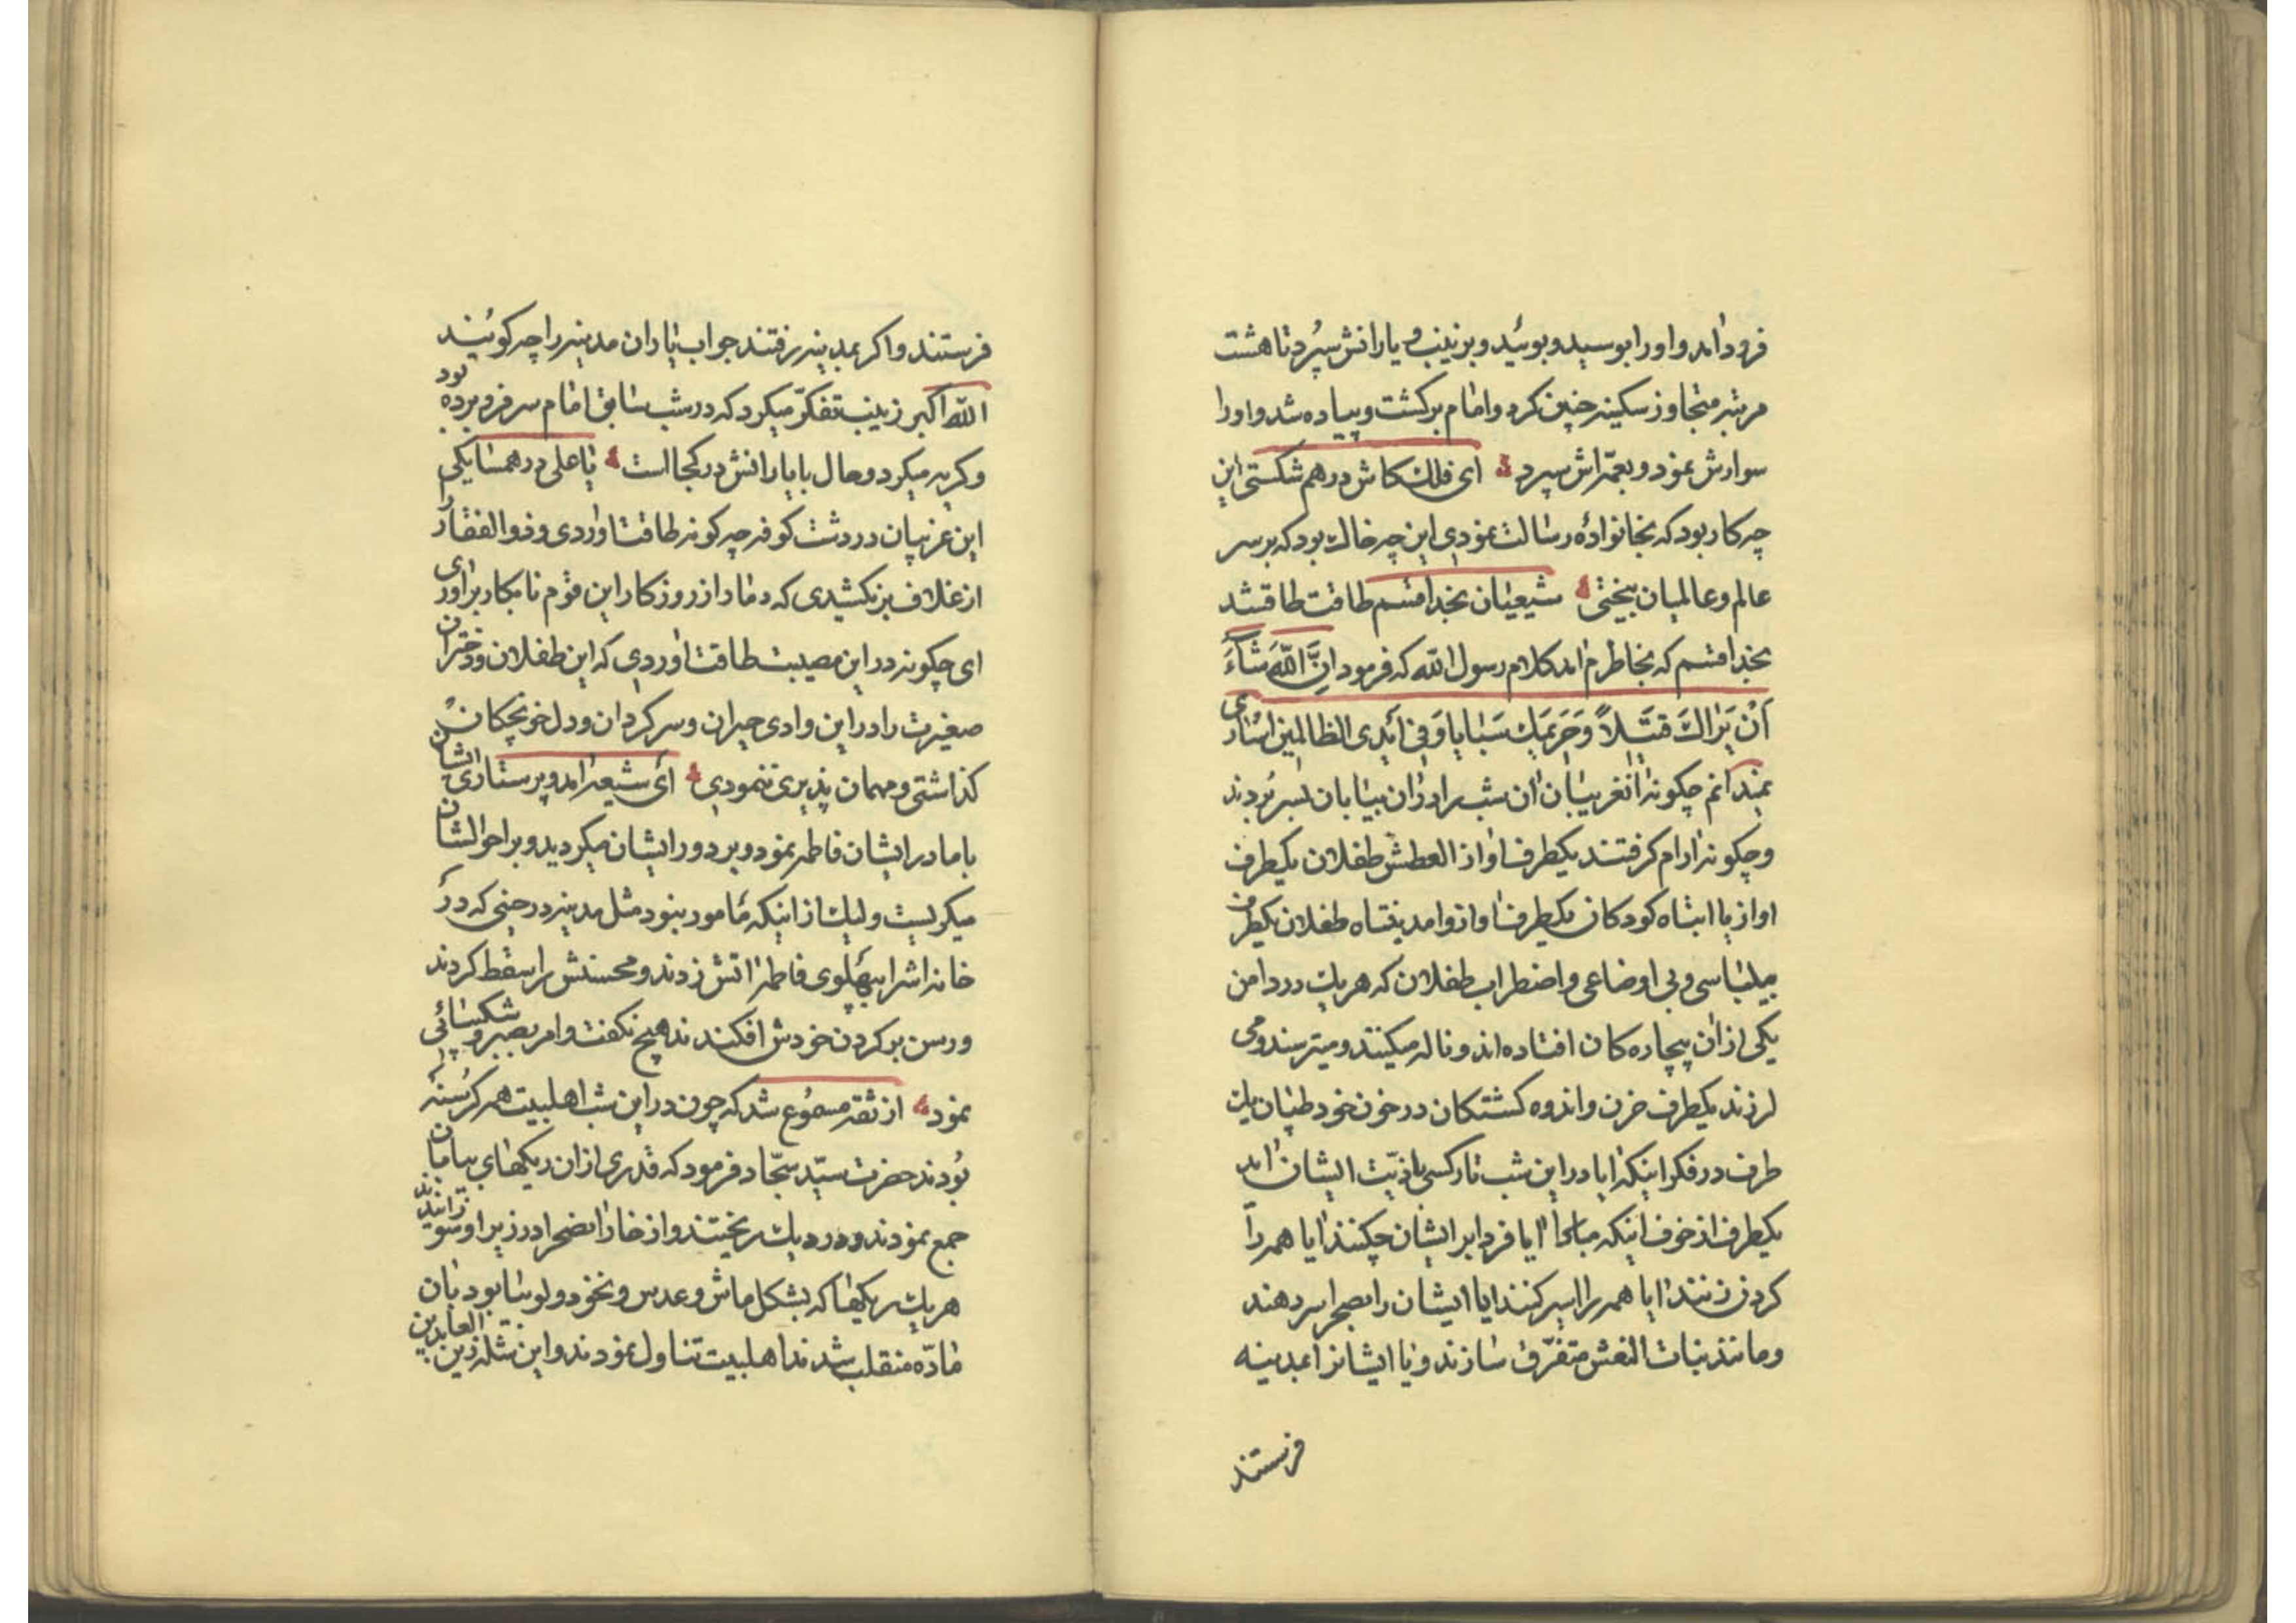 فرود امد و اورا بوسید و بوئید و بزینب و یارانش سپرد تا هشت
مرتبه متجاوز سکینه چنین کرد و امام برکشت و پیاده شد و اورا
سوارش نمود و بعمّه‌اش سپرد ای فلک کاش درهم شکستی این
چه کار بود که بخانوادهٔ رسالت نمودی این چه خاک بود که بر سر
عالم و عالمیان بیختی شیعیان بخدا قسم طاقت طاق شد
بخدا قسم که بخاطرم امد کلام رسول الله که فرمود اِنَّ اللّهَ شَآءَ
اَنْ یَرَاكَ قَتیلاً وَحَریمَكَ سَبایا وَفی اَیْدی الظالِمینَ اُسٰاری
نمیدانم چکونه آن غریبان ان شب را در ان بیابان بسر بردند
و چکونه ارام کرفتند یکطرف اواز العطش طفلان یکطرف
اواز یا ابتاه کودکان یکطرف اواز وا مدینتاه طفلان یکطرف
بیلباسی و بی اوضاعی و اضطراب طفلان که هر یک در دامن
یکی از ان بیچاره کان افتاده‌اند و ناله میکنند و میترسند و می
لرزند یکطرف حزن و اندوه کشتکان در خون خود طپیان یک
طرف در فکر اینکه ایا در این شب تار کسی باذیّت ایشان اید
یکطرف از خوف اینکه مبادا ایا فردا بر ایشان چکنند ایا همه را
کردن زنند ایا همه را اسیر کنند ایا ایشان را بصحرا سر دهند
و مانند بنات النعش متفرّق سازند و یا ایشانرا بمدینه
فرستند
فرستند و اکر بمدینه رفتند جواب یاران مدینه را چه کویند
الله اکبر زینب تفکّر میکرد که در شب سابق امام سر فرو برده بود
و کریه میکرد و حال با یارانش در کجا است یا علی در همسایکی
این غریبان در دشت کوفه چه کونه طاقت اوردی و ذوالفقار را
از غلاف بر نکشیدی که دمار از روزکار این قوم نابکار براوری
ای چکونه در این مصیبت طاقت اوردی که این طفلان و دختران
صغیرت را در این وادی حیران و سرکردان و دل خونچکان
کذاشتی و مهمان پذیری ننمودی ای شیعه امد و پرستاری ایشان
با مادر ایشان فاطمه نمود و بر دور ایشان میکردید و بر احوالشان
میکریست ولیک از اینکه مامور بنود مثل مدینه در حینی که در
خانه‌اش را بپهلوی فاطمه اتش زدند و محسنش را سقط کردند
و رسن بر کردن خودش افکندند هیچ نکفت و امر بصبر و شکیبائی
نمود از ثقه مسموع شد که چون در این شب اهلبیت همه کرسنه
بودند حضرت سیّد سجّاد فرمود که قدری از ان ریکهای بیابان
جمع نمودند و در دیک ریختند و از خار انصحرا در زیر او سوزانیدند
هر یک ریکها که بشکل ماش و عدس و نخود و لوبیا بود بان
مادّه منقلب شدند اهلبیت تناول نمودند و این شله زین العابدین